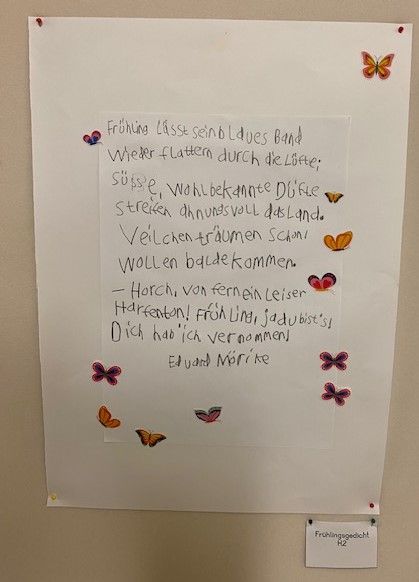 Frühling Lässt sein blaues Band
Wieder flattern durch die Lüfte;
Süsse, Wohlbekannte Düfte
Streifen ahnungsvoll das Land.
Veilchen träumen schon,
Wollen balde kommen.
– Horch, von fern ein leiser
Harfenton! Frühling, ja du bist's!
Dich hab' ich vernommen!
Eduard Mörike
Frühlingsgedicht
H2